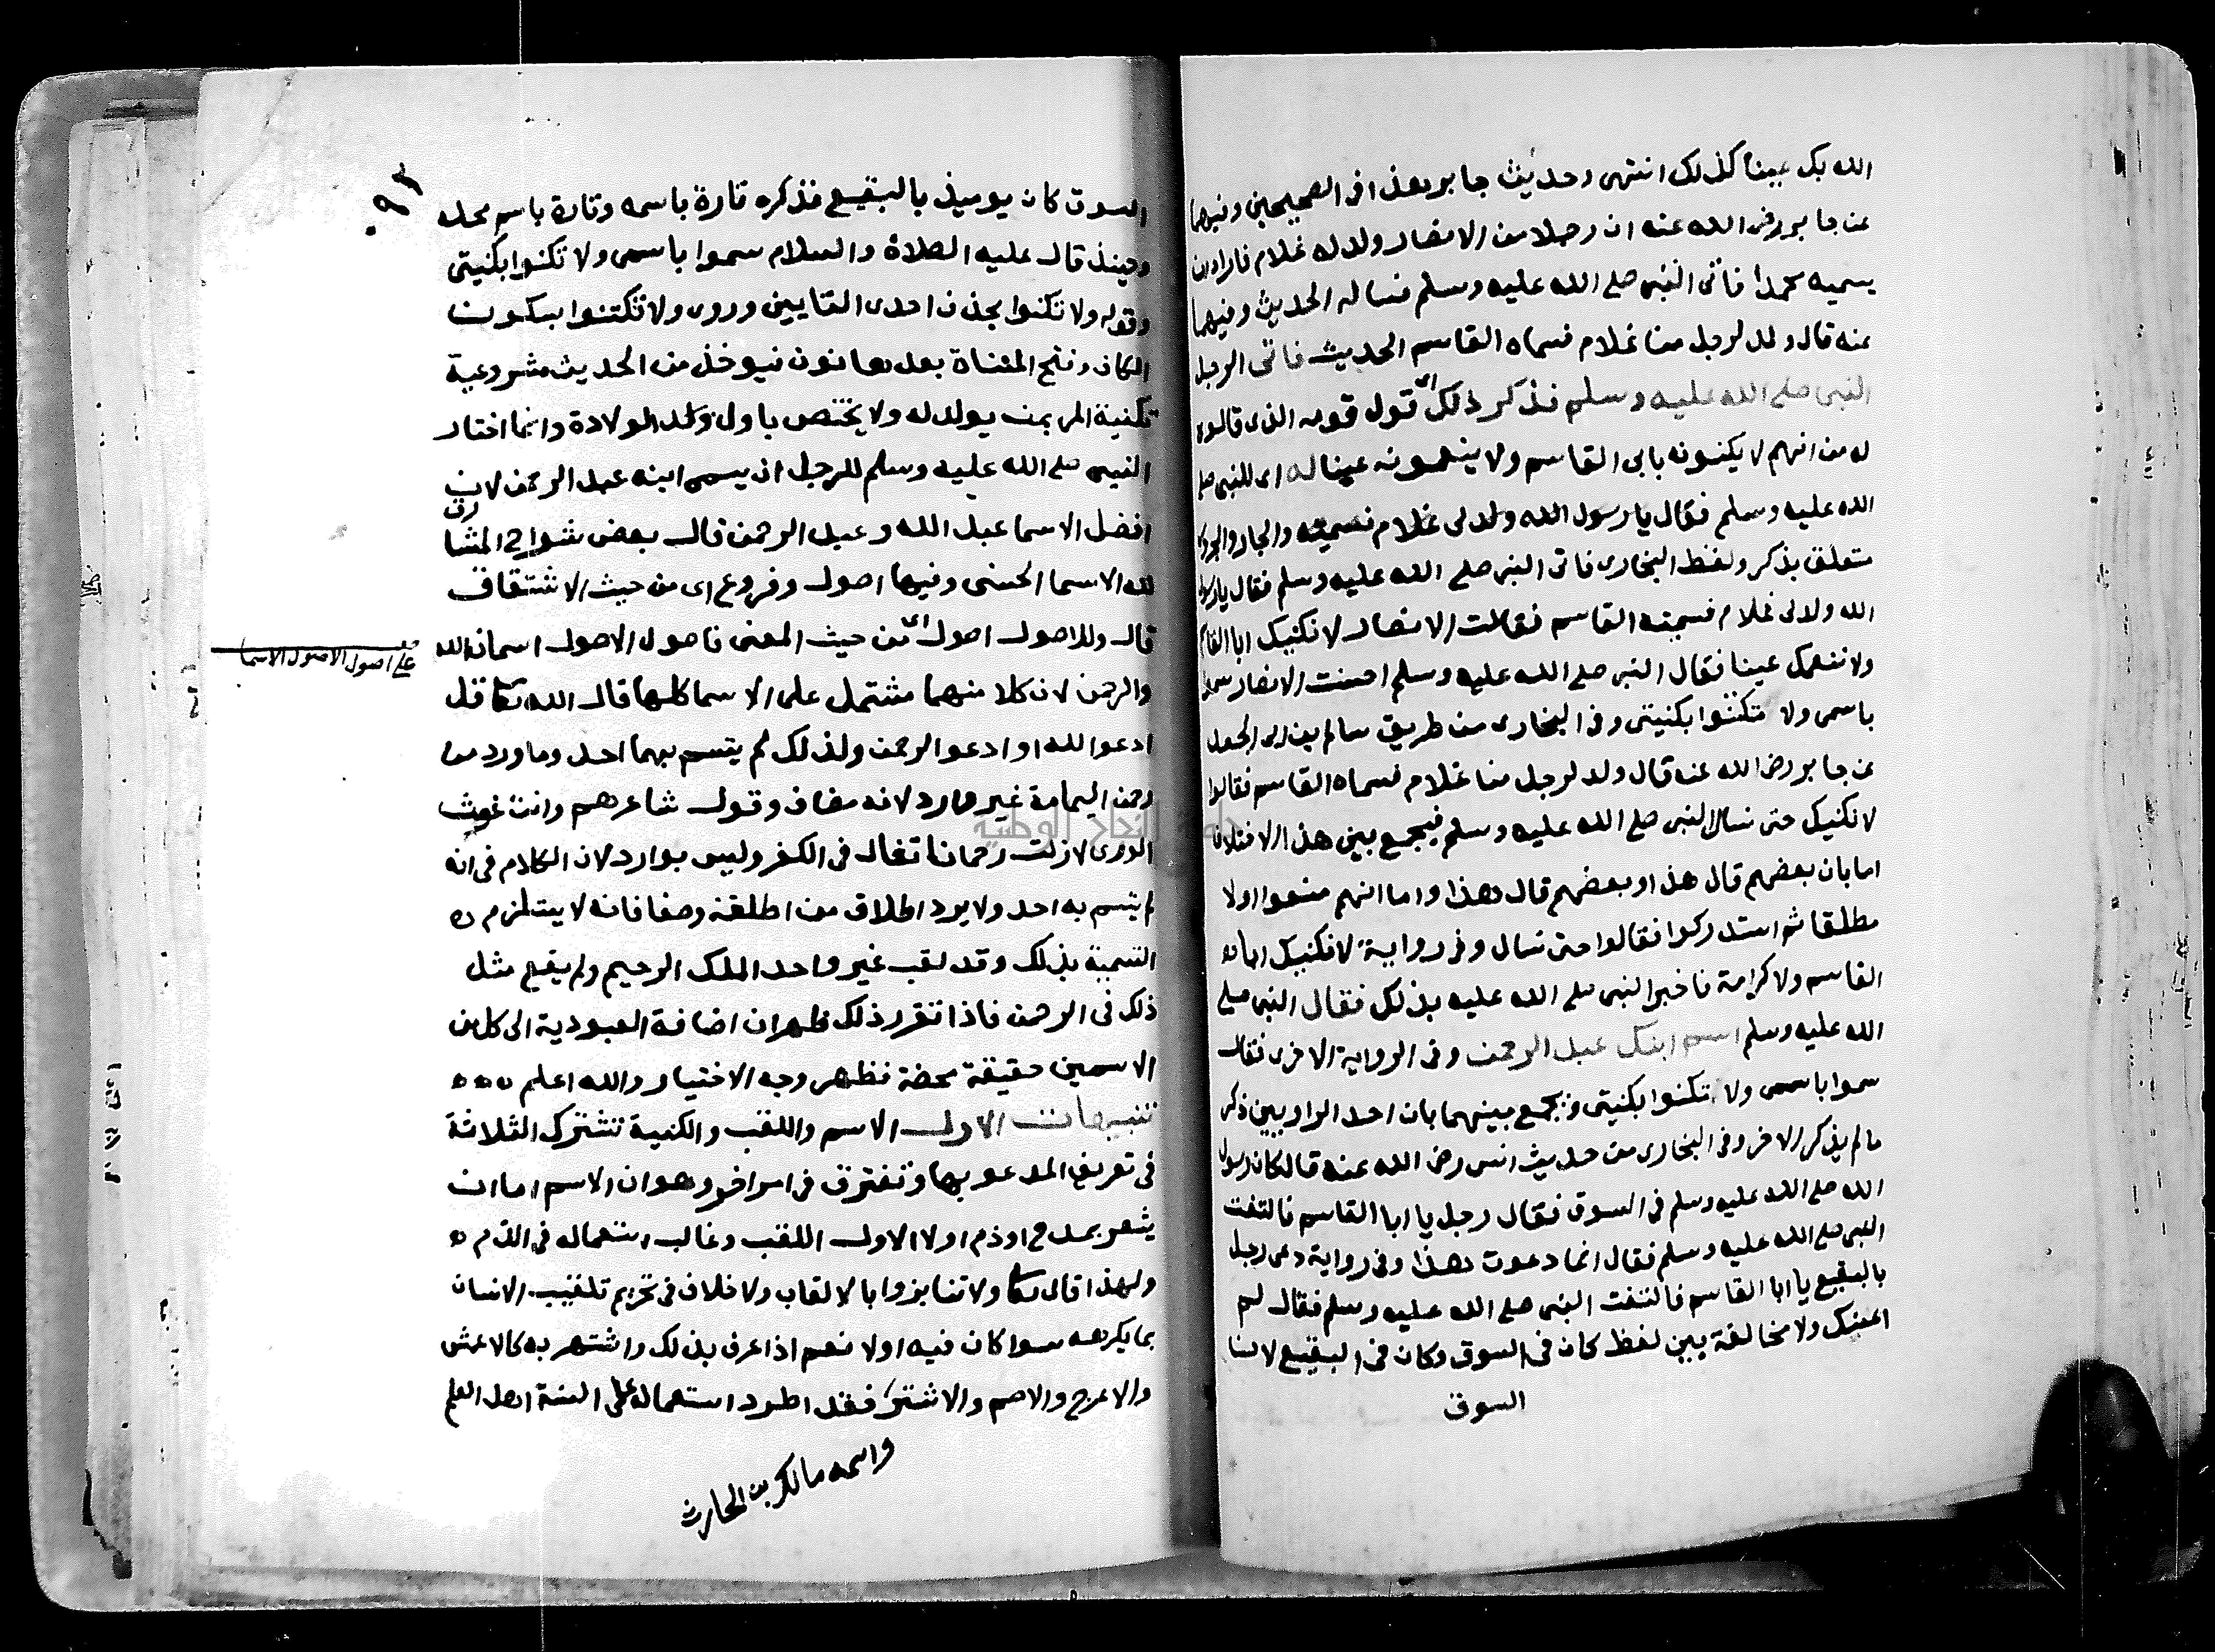 الله بك عينا كذلك انتهى وحديث جابر هذا فى الصحيحين وفيهما
عن جابر رضى الله عنه ان رجلا من الانصار ولد له غلام فاراد ان
يسميه محمدا فاتى النبى صلى الله عليه وسلم فساله الحديث وفيهما
عنه قال ولد لرجل منا غلام فسماه القاسم الحديث فاتى الرجل
النبى صلى الله عليه وسلم فذكر ذلك اى قول قومه الذى قالوه
له من انهم لا يكنونه بابى القاسم ولا ينعمونه عينا له اى للنبى صلى
الله عليه وسلم فقال يا رسول الله ولد لى غلام فسميته والجار والمجرور
متعلق بذكر ولفظ البخارى فاتى النبى صلى الله عليه وسلم فقال يا رسول
الله ولد لى غلام فسميته القاسم فقالت الانصار لا نكنيك ابا القاسم
ولا ننعمك عينا فقال النبى صلى الله عليه وسلم احسنت الانصار سموا
باسمى ولا تكنوا بكنيتى وفى البخارى من طريق سالم بن ابى الجعد
عن جابر رضى الله عنه قال ولد لرجل منا غلام فسماه القاسم فقالوا
لا نكنيك حتى نسال النبى صلى الله عليه وسلم فيجمع بين هذا الاختلاف
اما بان بعضهم قال هذا وبعضهم قال هذا واما انهم منعوا اولا
مطلقا ثم استدركوا فقالوا حتى نسال وفى رواية لا نكنيك ابا
القاسم ولا كرامة فاخبر النبى صلى الله عليه بذلك فقال النبى صلى
الله عليه وسلم اسم ابنك عبد الرحمن وفى الرواية الاخرى فقال
سموا باسمى ولا تكنوا بكنيتى ونجمع بينهما بان احد الراويين ذكر
ما لم يذكر الاخر وفى البخارى من حديث انس رضى الله عنه قال كان رسول
الله صلى الله عليه وسلم فى السوق فقال رجل يا ابا القاسم فالتفت
النبى صلى الله عليه وسلم فقال انما دعوت هذا وفى رواية دعى رجل
بالبقيع يا ابا القاسم فالتفت النبى صلى الله عليه وسلم فقال لم
اعنك ولا مخالفة بين لفظ كان فى السوق وكان فى البقيع لان
السوق
٠٩٢
السوق كان يوميذ بالبقيع فذكره تارة باسمه وتارة باسم محله
وحينذ قال عليه الصلاة والسلام سموا باسمى ولا تكنوا بكنيتى
وقوله ولا تكنوا بحذف احدى التايين وروى ولا تكتنوا بسكون
الكاف وفتح المثناة بعدها نون فيوخذ من الحديث مشروعية
تكنية المر بمن يولد له ولا يختص باول ولد الولادة وانما اختار
النبى صلى الله عليه وسلم للرجل ان يسمى ابنه عبد الرحمن لان
افضل الاسما عبد الله وعبد الرحمن قال بعض شواح المشارق
لله الاسما الحسنى وفيها اصول وفروع اى من حيث الاشتقاق
قال وللاصول اصول اى من حيث المعنى فاصول الاصول اسمان الله
على اصول الاصول الاسما
والرحمن لان كلا منهما مشتمل على الاسما كلها قال الله تعا قل
ادعوا الله او ادعو الرحمن ولذلك لم يتسم بهما احد وما ورد من
رحمن اليمامة غير وارد لانه مضاف وقول شاعرهم وانت غوث
الورى لا زلت رحمانا تغال فى الكفر وليس بوارد لان الكلام فى انه
لم يتسم به احد ولا يرد اطلاق من اطلقه وصفا فانه لا يستلزم
التسمية بذلك وقد لقب غير واحد الملك الرحيم ولم يقع مثل
ذلك فى الرحمن فاذا تقرر ذلك ظهر ان اضافة العبودية الى كل من
الاسمين حقيقة محضة فظهر وجه الاختيار والله اعلم
تنبيهات الاول الاسم واللقب والكنية تشترك الثلاثة
فى تعريف المدعو بها وتفترق فى امر اخر وهو ان الاسم اما ان
يشعر بمدح او ذم اولا الاول اللقب وغالب استعماله فى الذم
ولهذا قال تعا ولا تنابزوا بالالقاب ولا خلاف فى تحريم تلقيب الانسان
بما يكرهه سوا كان فيه اولا نعم اذا عرف بذلك واشتهر به كالاعمش
والاعرج والاصم والاشتر فقد اطرد استعماله على السنة اهل العلم
واسمه مالك بن الحارث